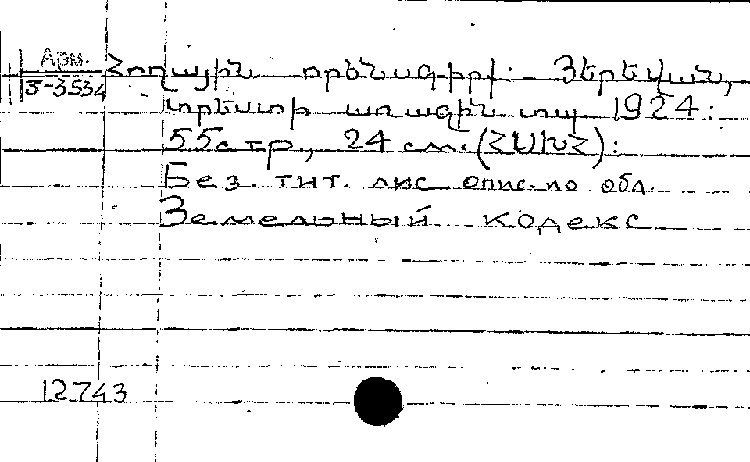 Арм.
5-3534
Հողային օրենսգիրք։ - Յերեվան,
տրեստի առաջին տպ 1924։
55стр, 24 см. (ՀՍԽՀ)։
Без. тит. лис опис. по обл.
Земельный кодекс
12743